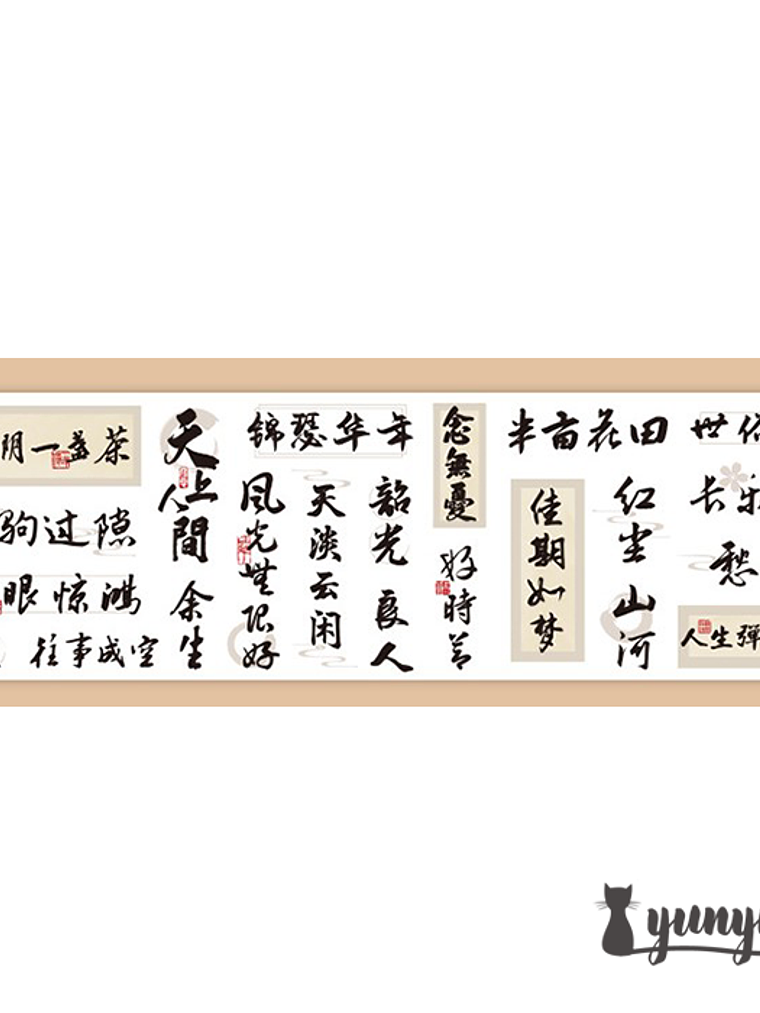 阴一盏茶
驹过隙
眼惊鸿
往事成空
天上
人間
余生
锦瑟华年
风光無限好
天淡云闲
韶光
良人
念無憂
好時节
半亩花田
佳期如梦
红尘
山河
世俗
长乐
愁
人生彈
yuny